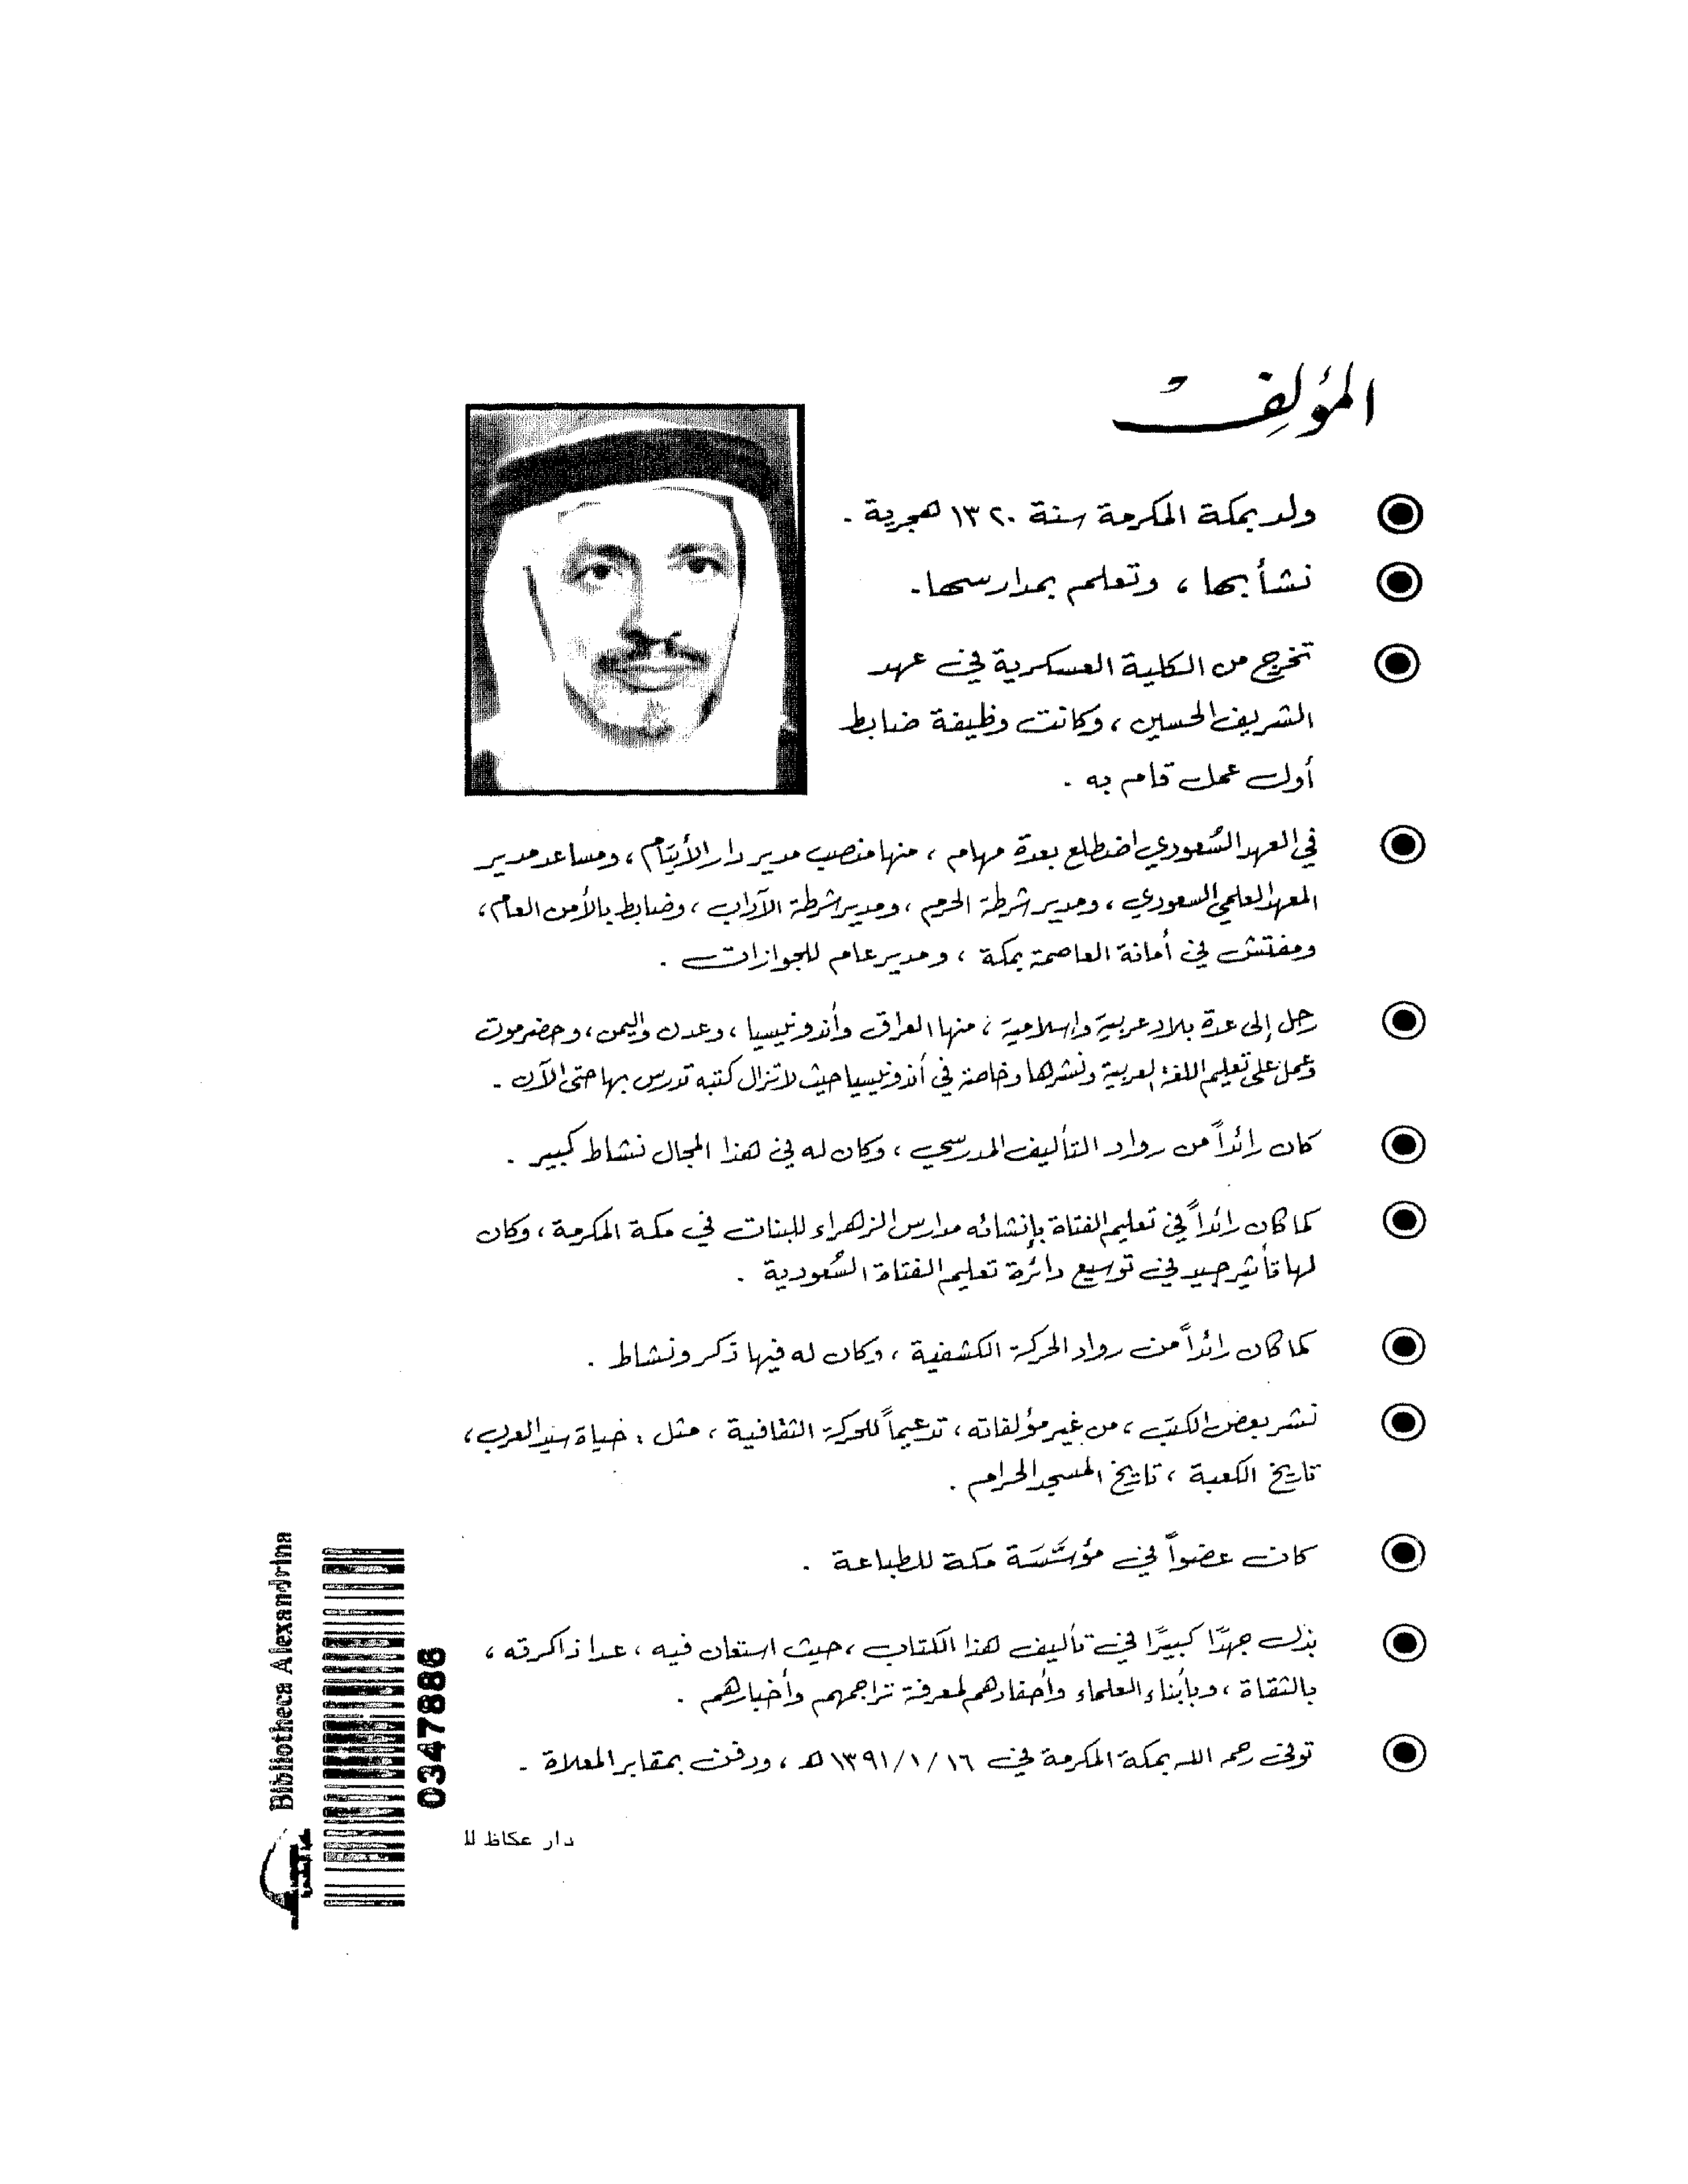 المؤلف
ولد بمكة المكرمة سنة ١٣٢٠ هجرية .
نشأ بها ، وتعلم بمدارسها .
تخرج من الكلية العسكرية في عهد
الشريف الحسين ، وكانت وظيفة ضابط
أول عمل قام به .
في العهد السُعودي اضطلع بعدة مهام ، منها منصب مدير دار الأيتام ، ومساعد مدير
المعهد العلمي السعودي ، ومدير شرطة الحرم ، ومدير شرطة الآداب ، وضابط بالأمن العام ،
ومفتش في أمانة العاصمة بمكة ، ومدير عام للجوازات .
رحل إلى عدة بلاد عربية وإسلامية ، منها العراق وأندونيسيا ، وعدن واليمن ، وحضرموت
وعمل على تعليم اللغة العربية ونشرها وخاصة في أندونيسيا حيث لا تزال كتبه تدرس بها حتى الآن .
كان رائداً من رواد التأليف المدرسي ، وكان له في هذا المجال نشاط كبير .
كما كان رائداً في تعليم الفتاة بإنشائه مدارس الزهراء للبنات في مكة المكرمة ، وكان
لها تأثير جيد في توسيع دائرة تعليم الفتاة السُعودية .
كما كان رائداً من رواد الحركة الكشفية ، وكان له فيها ذكر ونشاط .
نشر بعض الكتب ، من غير مؤلفاته ، تدعيماً للحركة الثقافية ، مثل : حياة سيد العرب ،
تاريخ الكعبة ، تاريخ المسجد الحرام .
كان عضواً في مؤسَّسَة مكة للطباعة .
بذل جهدًا كبيرًا في تأليف هذا الكتاب ، حيث استعان فيه ، عدا ذاكرته ،
بالثقاة ، وبأبناء العلماء وأحفادهم لمعرفة تراجمهم وأخبارهم .
توفى رحمه الله بمكة المكرمة في ١٦ / ١ / ١٣٩١ هـ ، ودفن بمقابر المعلاة .
دار عكاظ للـ
Bibliotheca Alexandrina
0347886